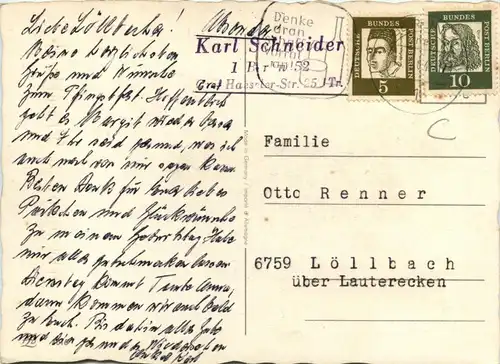 Liebe Löllbacher!
Meine herzlichen
Grüße und Wünsche
zum Pfingstfest. Hoffentlich
geht es Margit wieder besser
und Ihr seid gesund, was ich
auch von mir sagen kann.
Besten Dank für Euer liebes
Päckchen und Glückwünsche
zu meinem Geburtstag. Habe
mir alles gutschmecken lassen
Dienstag kommt Tante Anna,
dann kommen wir auch bald
zu Euch. Bis dahin alles Gute
und
Denke
dran
Karl Schneider
1 Berlin 52
Graf Haeseler-Str. 25 I Tr.
DEUTSCHE BUNDES POST BERLIN
5
DEUTSCHE BUNDES POST BERLIN
10
C
Made in Germany
Familie
Otto Renner
6759 Löllbach
über Lauterecken